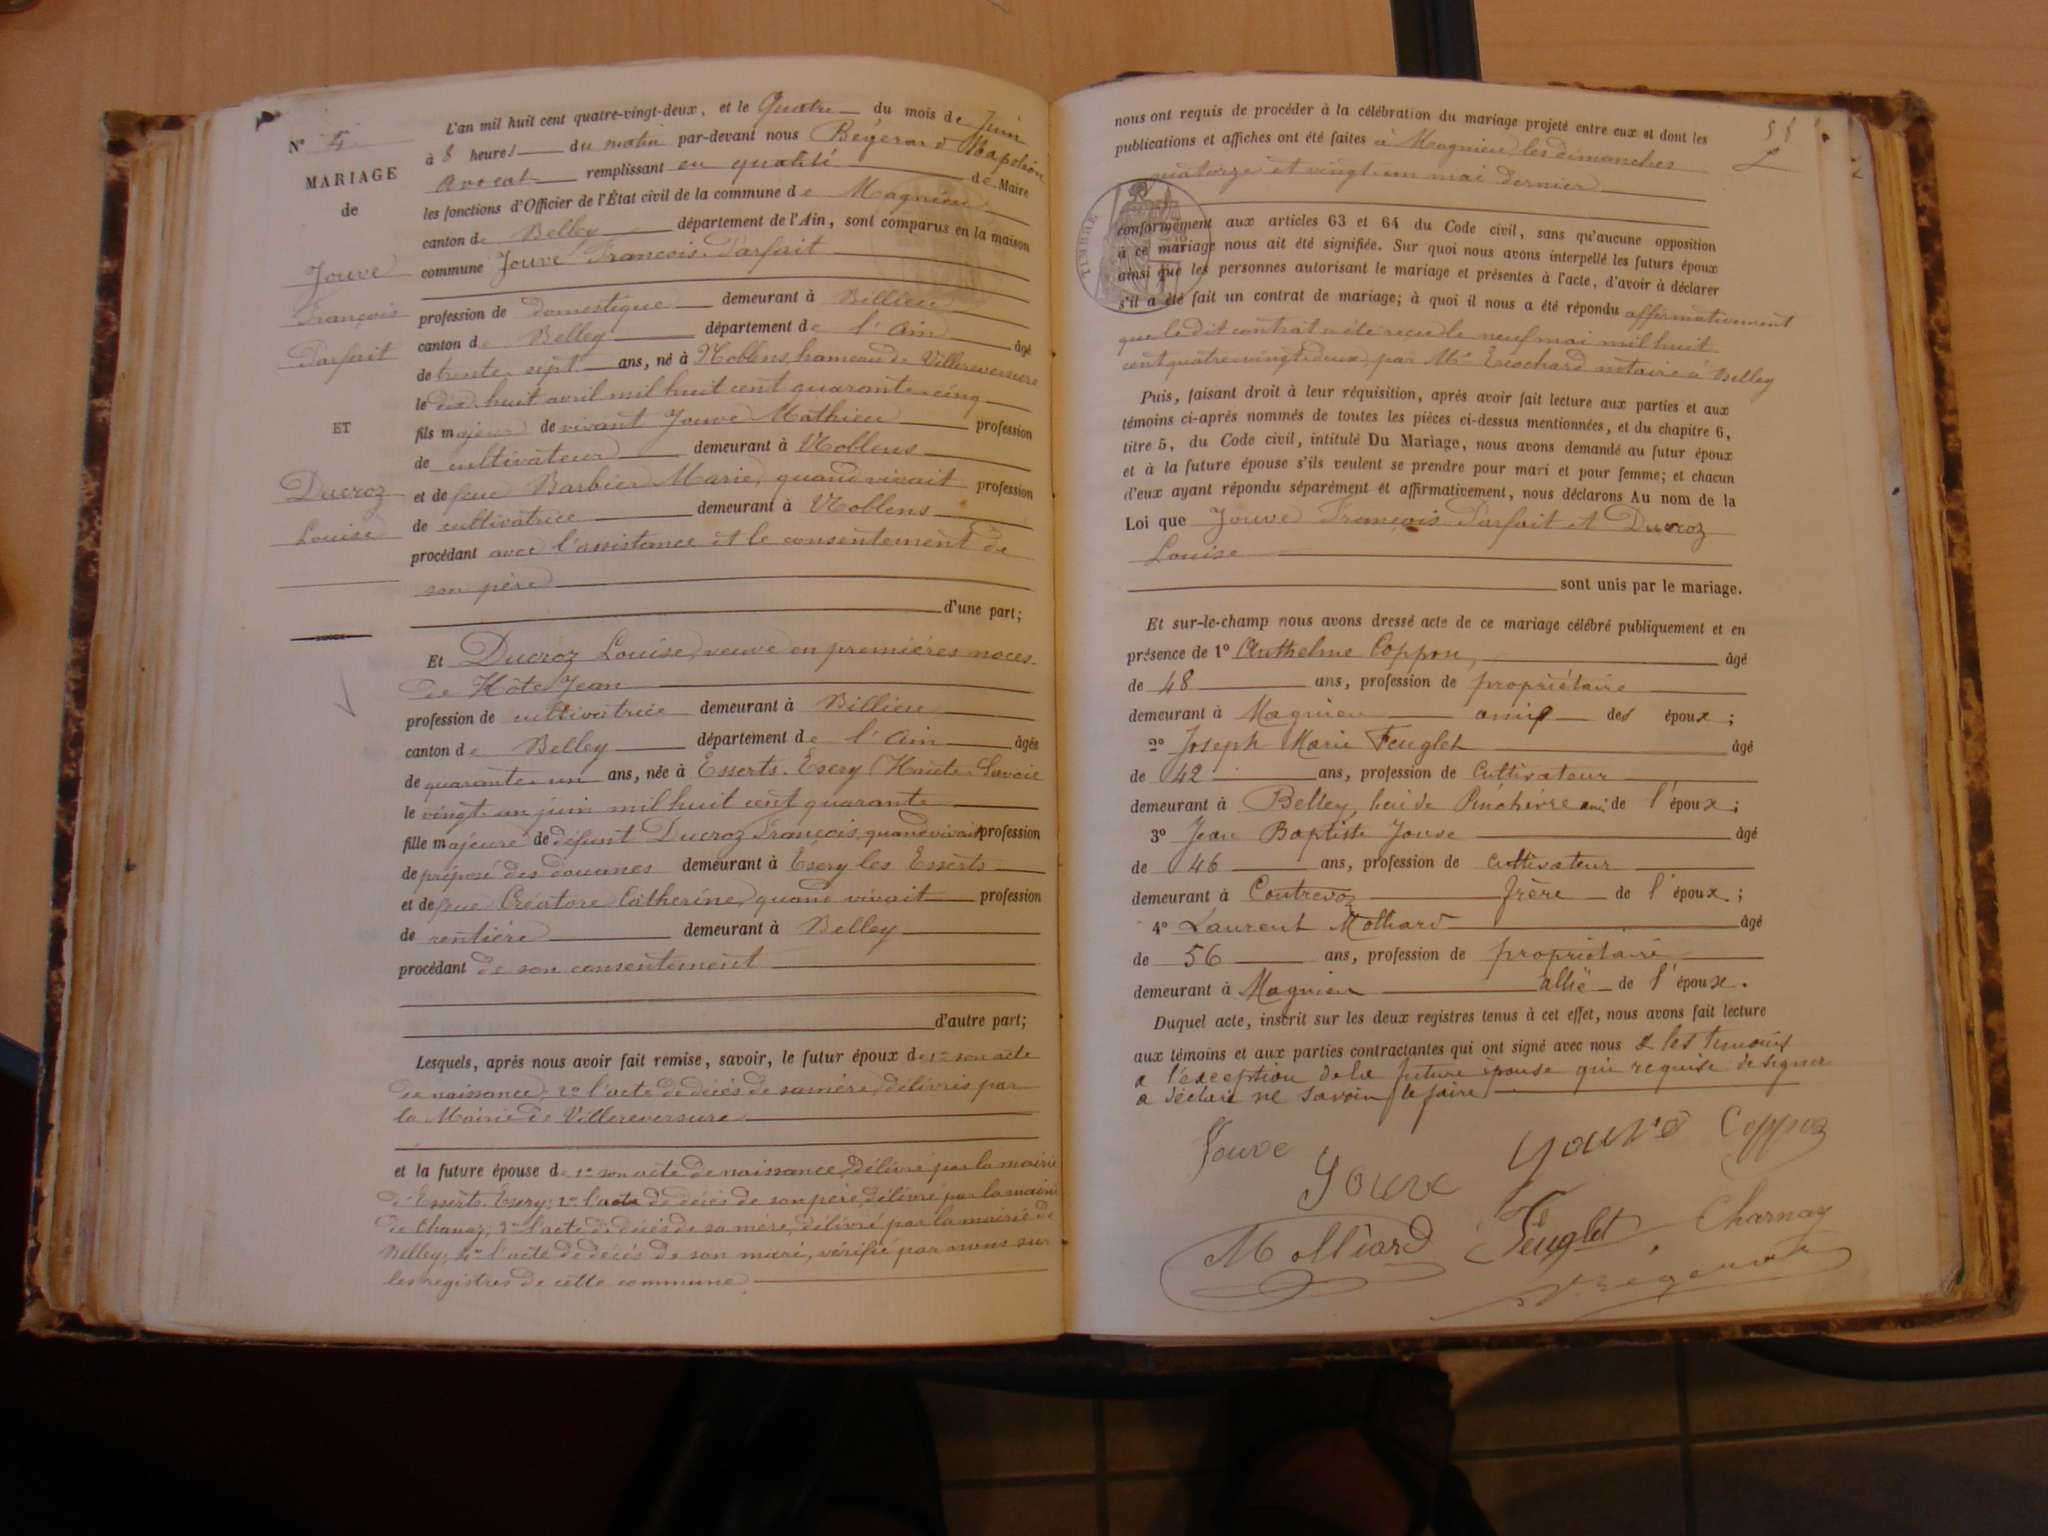 N° 4
MARIAGE
de
Jouve
François
Parfait
ET
Ducroz
Louise
L'an mil huit cent quatre-vingt-deux, et le Quatre du mois de Juin
à 8 heures du matin par-devant nous Bégerard Napoléon
Avocat remplissant en qualité de Maire
les fonctions d'Officier de l'État civil de la commune de Magnieu
canton de Belley département de l'Ain, sont comparus en la maison
commune Jouve François Parfait
profession de domestique demeurant à Billieu
canton de Belley département de l'Ain âgé
de trente-sept ans, né à Noblens hameau de Villereversure
le dix-huit avril mil huit cent quarante-cinq
fils majeur de vivant Jouve Mathieu profession
de cultivateur demeurant à Noblens
et de feue Barbier Marie, quand vivait profession
de cultivatrice demeurant à Noblens
procédant avec l'assistance et le consentement de
son père
d'une part;
Et Ducroz Louise, veuve en premières noces
de Hôte Jean
profession de cultivatrice demeurant à Billieu
canton de Belley département de l'Ain âgée
de quarante-un ans, née à Esserts-Esery (Haute-Savoie
le vingt-un juin mil huit cent quarante
fille majeure de défunt Ducroz François, quand vivait profession
de préposé des douanes demeurant à Esery les Esserts
et de feue Créatore Catherine, quand vivait profession
de rentière demeurant à Belley
procédant de son consentement
d'autre part;
Lesquels, après nous avoir fait remise, savoir, le futur époux de 1° son acte
de naissance; 2° l'acte de décès de sa mère, délivrés par
la Mairie de Villereversure
et la future épouse de 1° son acte de naissance, délivré par la mairie
d'Esserts-Esery; 2° l'acte de décès de son père, délivré par la mairie
de Chanaz; 3° l'acte de décès de sa mère, délivré par la mairie de
Belley; 4° l'acte de décès de son mari, vérifié par nous sur
les registres de cette commune
58
nous ont requis de procéder à la célébration du mariage projeté entre eux et dont les
publications et affiches ont été faites à Magnieu les dimanches
quatorze et vingt-un mai dernier
TIMBRE
conformément aux articles 63 et 64 du Code civil, sans qu'aucune opposition
à ce mariage nous ait été signifiée. Sur quoi nous avons interpellé les futurs époux
ainsi que les personnes autorisant le mariage et présentes à l'acte, d'avoir à déclarer
s'il a été fait un contrat de mariage; à quoi il nous a été répondu affirmativement
que ledit contrat a été reçu le neuf mai mil huit
cent quatre vingt deux, par Me notaire à Belley
Puis, faisant droit à leur réquisition, après avoir fait lecture aux parties et aux
témoins ci-après nommés de toutes les pièces ci-dessus mentionnées, et du chapitre 6,
titre 5, du Code civil, intitulé Du Mariage, nous avons demandé au futur époux
et à la future épouse s'ils veulent se prendre pour mari et pour femme; et chacun
d'eux ayant répondu séparément et affirmativement, nous déclarons Au nom de la
Loi que Jouve François Parfait et Ducroz
Louise
sont unis par le mariage.
Et sur-le-champ nous avons dressé acte de ce mariage célébré publiquement et en
présence de 1° Anthelme Coppon, âgé
de 48 ans, profession de propriétaire
demeurant à Magnieu ami des époux;
2° Joseph Marie Feuglet âgé
de 42 ans, profession de Cultivateur
demeurant à Belley, ami de l'époux;
3° Jean Baptiste Jouve âgé
de 46 ans, profession de cultivateur
demeurant à Contrevoz frère de l'époux;
4° Laurent Molliard âgé
de 56 ans, profession de propriétaire
demeurant à Magnieu allié de l'époux.
Duquel acte, inscrit sur les deux registres tenus à cet effet, nous avons fait lecture
aux témoins et aux parties contractantes qui ont signé avec nous & les témoins
a l'exception de la future épouse qui requise de signer
a déclaré ne savoir le faire
Jouve Jouve Coppoz
Jouve
Molliard Feuglet Charnay